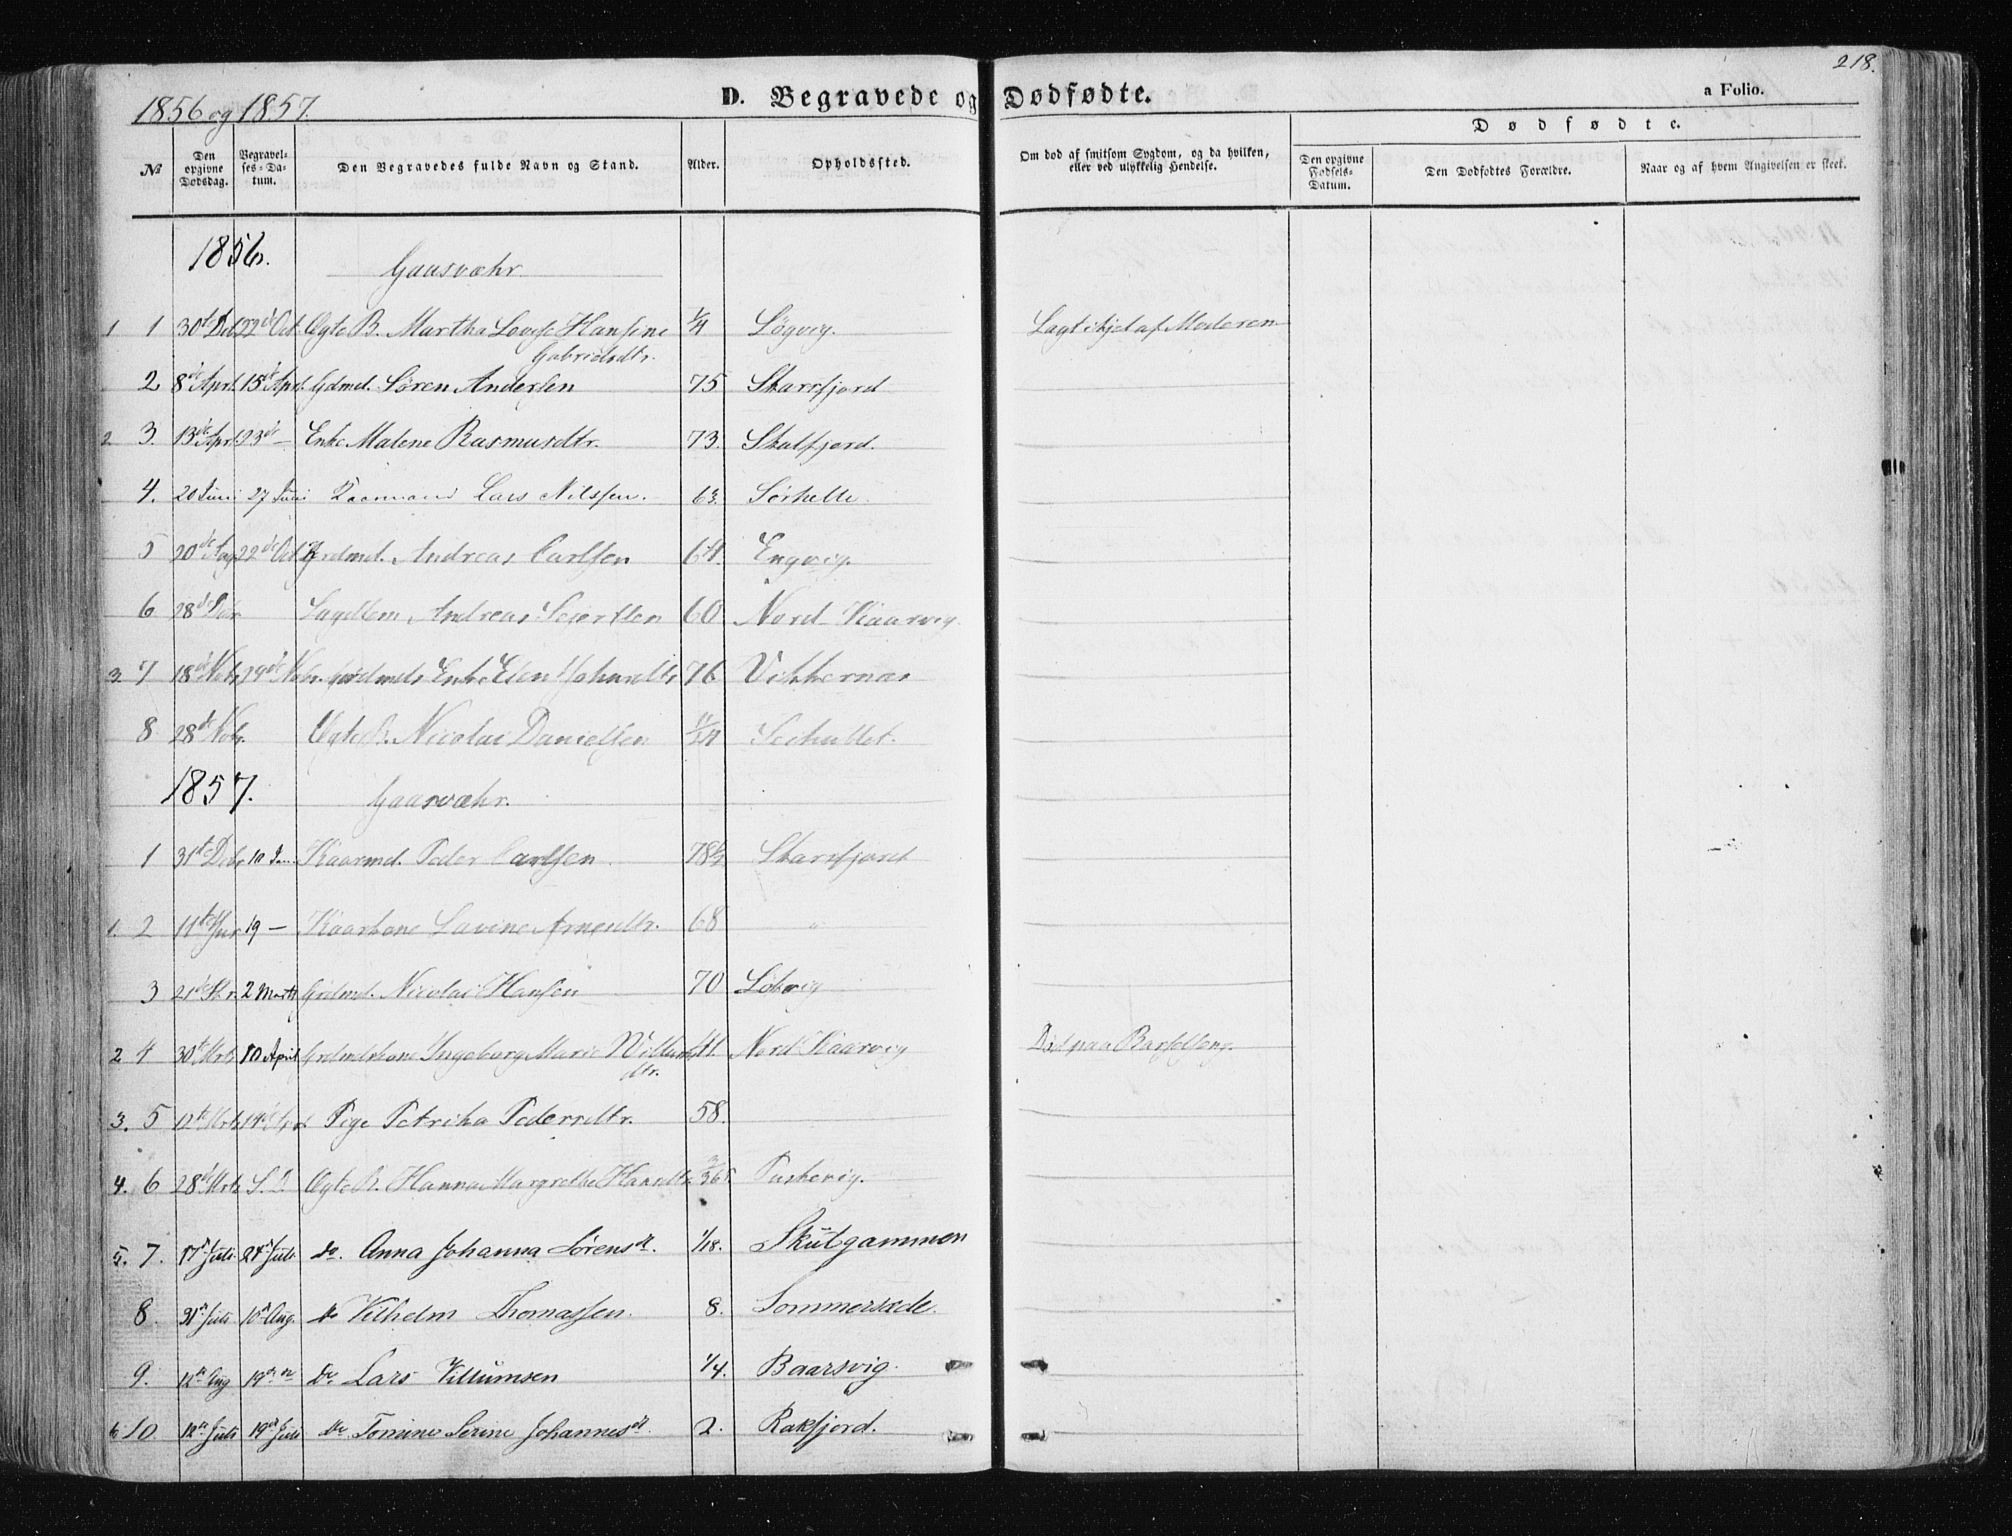 218.
1856 og 1857.
D. Begravede og Dødfødte.
a Folio.
Dødfødte.
№
Den opgivne Dødsdag.
Begravelses-Datum.
Den Begravedes fulde Navn og Stand.
Alder.
Opholdssted.
Om død af smitsom Sygdom, og da hvilken, eller ved ulykkelig Hendelse.
Den opgivne Fødsels-Datum.
Den Dødfødtes Forældre.
Naar og af hvem Angivelsen er skeet.
1856. Gaasvæhr
1 1 30t 22d Oct. Ægte B. Martha Lovise Hansine 1/4 Løgvig. Lagt ihjel af Moderen
Gabrielsdtr.
2 8de Apr. 15de Apr. Gdmd. Søren Andersen 75 Skarsfjord
2 3. 13de Apr. 23de — Enke Malene Rasmusdtr. 73. Skulsfjord.
4. 20 Juni 27 Juni Lars Nilssen. 63.
5 20de Aug 22de Oct. Grdmd. Andreas Carlsen 64. Engvig.
6 28de Lægdlem Andreas 60 Nord Kaarvig.
3. 7 18de Nobr. 29de Nobr. Grdmds Enke Elen 76 Vikkernæs
8 28de Nobr. Ægte B. Nicolai Danielsen 11/24
1857. Gaasvæhr.
1 31te Debr. 10 Jan. Kaarmd. Peder Carlsen. 78 1/2 Skarsfjord
1. 2 11te 19 — Kaarkone Lavine Arnesdtr. 68 "
3 21de 2 Marts Grdmd. Nicolai Hansen 70
2 4 30te Mrts 10 April Grdmdskone Ingeborg Marie Willumsdtr. 41. Nord Kaarvig Død paa Barselseng.
3. 5 12te Mrts 14de Pige Petrika Pedersdtr. 58.
4. 6 28de Mrts S. D. Ægte B. Hanna Margrethe Hansdtr. /365 Tuskevig.
5. 7. 17de Juli 24de Juli do. Anna Johanna Sørensdt. 1/18. Skütgammen
8. 31te Juli 10de Aug. do Vilhelm Thomassen. 8. Sommersæde.
9. 12te Aug 19de do Do Lars Villumsen 1/4. Baarsvig.
6 10. 12te Juli 19de Juli do. Tomine Serine Johannesdt. 2. Rakfjord.